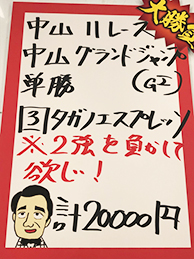 大勝
中山 11レース
中山グランドジャンプ
単勝 (G2)
3 タガノエスプレッソ
※2強を負かして
欲じい!
計20000円